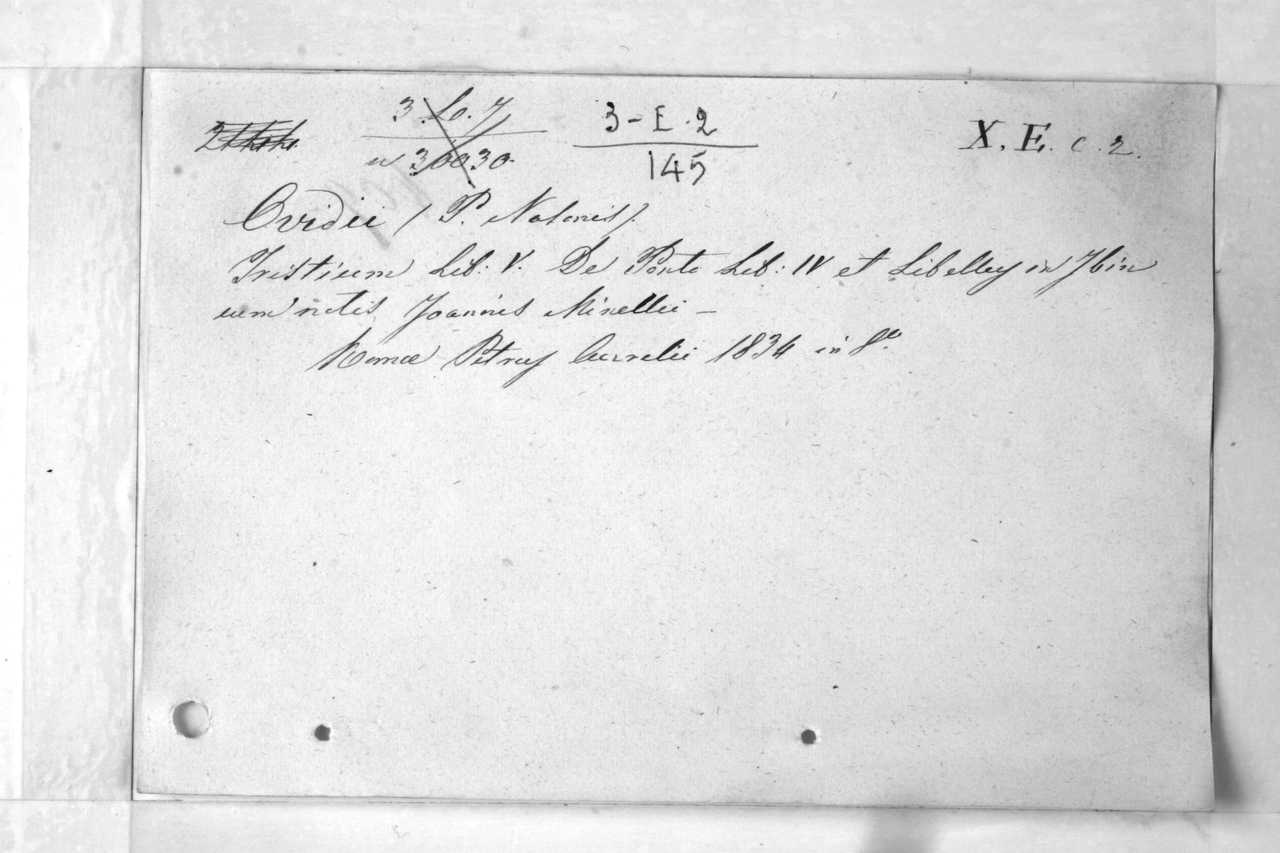 3-E.2
145
X. E. c. 2.
Ovidii (P. Nasonis).
Tristium Lib: V. De Ponto Lib: IV et Libellus in Ibin
cum notis Joannis Minellii —
Romæ Petrus Aurelii 1834 in 8º.